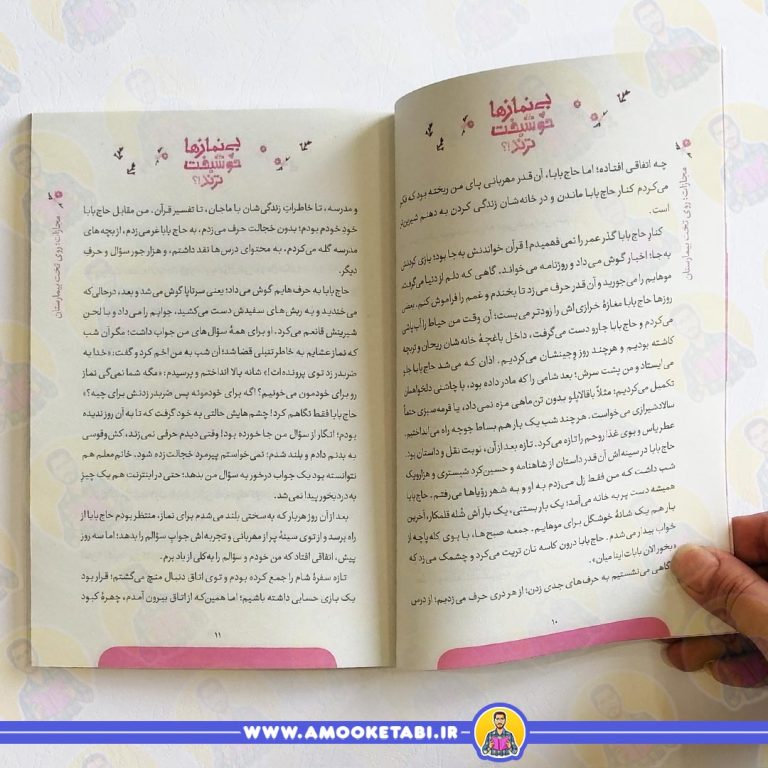 بی‌نمازها
خوشبخت
ترند!؟
مجازات: روی تخت بیمارستان
چه اتفاقی افتاده؛ اما حاج‌بابا، آن‌قدر مهربانی پای من ریخته بود که فکر
می‌کردم کنار حاج‌بابا ماندن و در خانه‌شان زندگی کردن به دهنم شیرین‌تر
است.
کنار حاج‌بابا گذر عمر را نمی‌فهمیدم! قرآن خواندنش به جا بود؛ بازی کردنش
به جا؛ اخبار گوش می‌داد و روزنامه می‌خواند. گاهی که دلم از دنیا می‌گرفت،
موهایم را می‌جورید و آن‌قدر حرف می‌زد تا بخندم و غمم را فراموش کنم. بعضی
روزها حاج‌بابا مغازهٔ خرازی‌اش را زودتر می‌بست؛ آن وقت من حیاط را آب‌پاشی
می‌کردم و حاج‌بابا جارو دست می‌گرفت. داخل باغچهٔ خانه‌شان ریحان و تربچه
کاشته بودیم و هرچند روز وجینشان می‌کردیم. اذان که می‌شد حاج‌بابا جلو
می‌ایستاد و من پشت سرش؛ بعد شامی را که مادر داده بود، با چاشنی دلخواهمان
تکمیل می‌کردیم؛ مثلاً باقالاپلو بدون تن ماهی مزه نمی‌داد، یا قرمه‌سبزی حتماً
سالادشیرازی می‌خواست. هرچند شب یک بار هم بساط جوجه راه می‌انداختیم.
عطر یاس و بوی غذا روحم را تازه می‌کرد. تازه بعد از آن، نوبت نقل و داستان بود.
حاج‌بابا در سینه‌اش آن‌قدر داستان از شاهنامه و حسین‌کرد شبستری و هزارویک
شب داشت که من فقط زل می‌زدم به او و به شهر رؤیاها می‌رفتم. حاج‌بابا
همیشه دست پر به خانه می‌آمد؛ یک بار بستنی، یک بار آش شُله قلمکار، آخرین
بار هم یک شانهٔ خوشگل برای موهایم. جمعه صبح‌ها، با بوی کله‌پاچه از
خواب بیدار می‌شدم. حاج‌بابا درون کاسه نان تریت می‌کرد و چشمک می‌زد که
«بخور الان بابات اینا میان».
گاهی می‌نشستیم به حرف‌های جدی زدن؛ از هر دری حرف می‌زدیم؛ از درس
۱۰
بی‌نمازها
خوشبخت
ترند!؟
مجازات: روی تخت بیمارستان
و مدرسه، تا خاطرات زندگی‌شان با ماجان، تا تفسیر قرآن. من مقابل حاج‌بابا
خود خودم بودم؛ بدون خجالت حرف می‌زدم، به حاج‌بابا غر می‌زدم، از بچه‌های
مدرسه گله می‌کردم، به محتوای درس‌ها نقد داشتم، و هزار جور سؤال و حرف
دیگر.
حاج‌بابا به حرف‌هایم گوش می‌داد؛ یعنی سرتاپا گوش می‌شد و بعد، درحالی‌که
می‌خندید و به ریش‌های سفیدش دست می‌کشید، جوابم را می‌داد و با لحن
شیرینش قانعم می‌کرد. او برای همهٔ سؤال‌های من جواب داشت؛ مگر آن شب
که نماز عشایم به خاطر تنبلی قضا شد؛ آن شب به من اخم کرد و گفت: «خدا یه
ضربدر زد توی پرونده‌ات!» شانه بالا انداختم و پرسیدم: «مگه شما نمی‌گی نماز
رو برای خودمون می‌خونیم؟ اگه برای خودمونه پس ضربدر زدنش برای چیه؟»
حاج‌بابا فقط نگاهم کرد! چشم‌هایش حالتی به خود گرفت که تا به آن روز ندیده
بودم؛ انگار از سؤال من جا خورده بود! وقتی دیدم حرفی نمی‌زند، کش‌وقوسی
به بدنم دادم و بلند شدم؛ نمی‌خواستم پیرمرد خجالت‌زده شود. خانم معلم هم
نتوانسته بود یک جواب درخور به سؤال من بدهد؛ حتی در اینترنت هم یک چیز
به‌دردبخور پیدا نمی‌شد.
بعد از آن روز هربار که به‌سختی بلند می‌شدم برای نماز، منتظر بودم حاج‌بابا از
راه برسد و از توی سینهٔ پر از مهربانی و تجربه‌اش جواب سؤالم را بدهد؛ اما سه روز
پیش، اتفاقی افتاد که من خودم و سؤالم را به‌کلی از یاد برم.
تازه سفرهٔ شام را جمع کرده بودم و توی اتاق دنبال منچ می‌گشتم؛ قرار بود
یک بازی حسابی داشته باشیم؛ اما همین‌که از اتاق بیرون آمدم، چهرهٔ کبود
۱۱
WWW.AMOOKETABI.IR